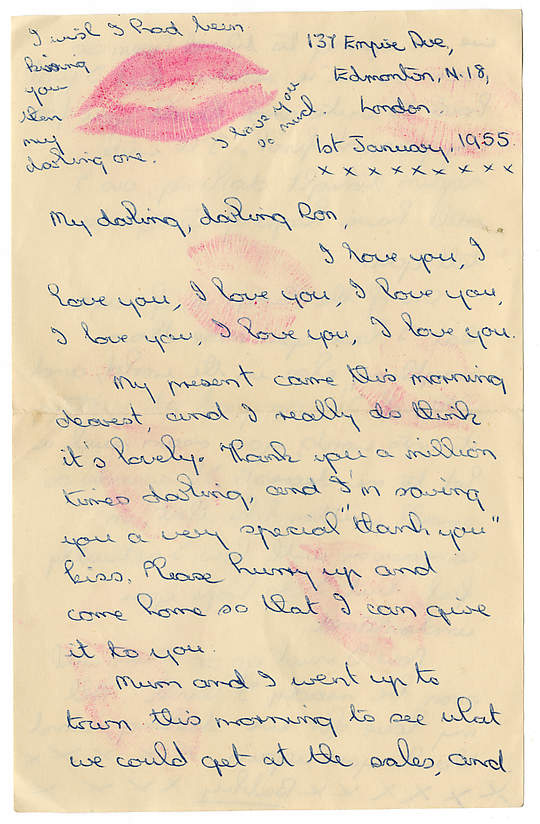 I wish I had been
kissing
you
then
my
darling one.
I love you
so much.
137 Empire Ave,
Edmonton, N.18,
London.
1st January, 1955.
x x x x x x x x x
My darling, darling Ron,
I love you, I
love you, I love you, I love you,
I love you, I love you, I love you.
My present came this morning
dearest, and I really do think
it's lovely. Thank you a million
times darling, and I'm saving
you a very special "thank you"
kiss. Please hurry up and
come home so that I can give
it to you.
Mum and I went up to
town this morning to see what
we could get at the sales, and